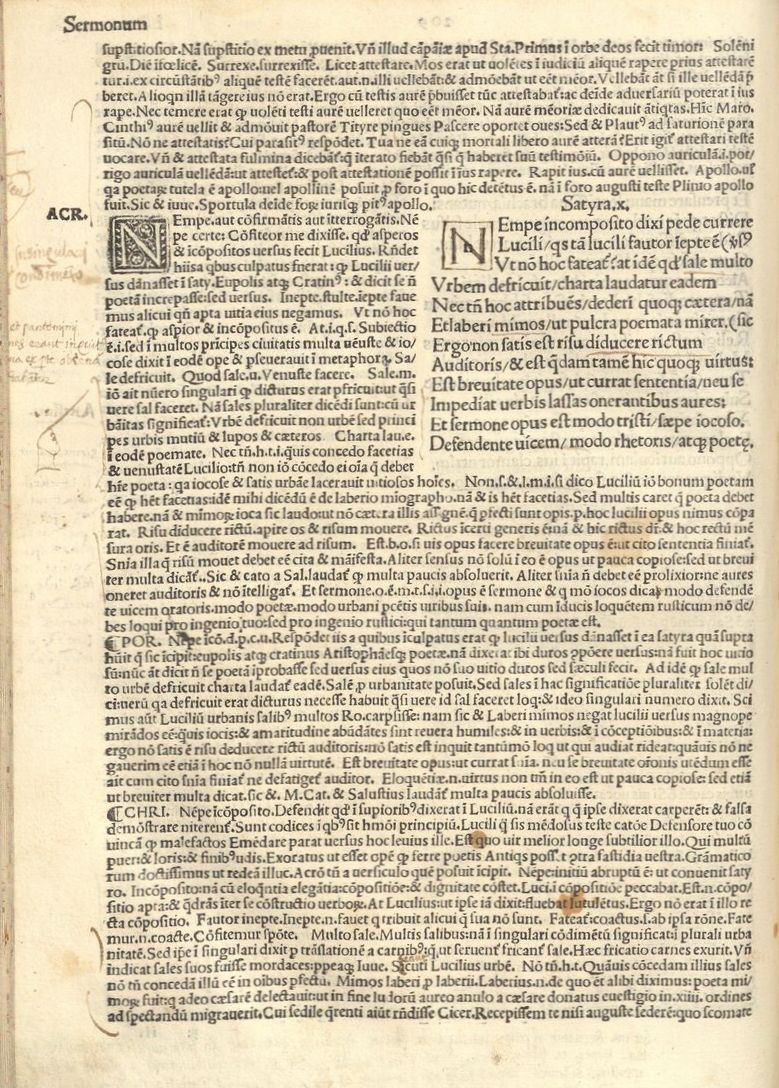 Sermonum
supstitiosior. Nā supstitio ex metu puenit. Vñ illud cāpāiæ apud Sta. Primus ī orbe deos fecit timor: Solēni
gtu. Die īfœlicē. Surrexe. surrexisse. Licet attestare. Mos erat ut uolētes ī iudiciū aliquē rapere prius attestarē
tur. i. ex circūstātib⁹ aliquē testē facerēt. aut. n. illi uellebāt: & admoēbāt ut eēt mēor. Vellebāt āt si ille uellēdā p̄
beret. Alioqn illā tāgere ius nō erat. Ergo cū testis aurē p̄buisset tūc attestabat: ac deide aduersariū poterat ī ius
rape. Nec temere erat ꝙ uolēti testi aurē uelleret quo eēt mēor. Nā aurē mēoriæ dedicauit ātiqtas. Hāc Maro.
Cinthi⁹ aurē uellit & admouit pastorē Tityre pingues Pascere oportet oues: Sed & Plaut⁹ ad saturionē para
sitū. Nō ne attestatis: Cui parasit⁹ respōdet. Tua ne eā cuiq mortali libero aurē atterā? Erit igit attestari testē
uocare. Vñ & attestata fulmina dicebāt: q iterato fiebāt qsi q haberet suū testimōiū. Oppono auriculā. i. por/
rigo auriculā uellēdā: ut attestet: & post attestationē possit ī ius rapere. Rapit ius. cū aurē uellisset. Apollo. uf
qa poetaꝝ tutela ē apollo: uel apollinē posuit p foro ī quo hic detētus ē. nā ī foro augusti teste Plinio apollo
fuit. Sic & iuue. Sportula deide foꝝ iurisq pit⁹ apollo.
Satyra. x.
ACR.
NEmpe. aut cōfirmātis aut īterrogātis. Nē
pe certe: Cōfiteor me dixisse. qd asperos
& icōpositos uersus fecit Lucilius. Rñdet
his a qbus culpatus fuerat: ꝙ Lucilii uer/
sus dānasset ī saty. Eupolis atq Cratin⁹: & dicit se ñ
poetā increpasse: sed uersus. Inepte. stulte. iepte faue
mus alicui qñ apta uitia eius negamus. Vt nō hoc
fateat. ꝙ aspior & icōpositus ē. At. i. q. f. Subiectio
ē. i. sed ī multos prīcipes ciuitatis multa uēuste & io/
cose dixit ī eodē ope & pseuerauit ī metaphora. Sa/
le defricuit. Quod sale. u. Venuste facere. Sale. m.
iō ait nūero singulari ꝙ dicturus erat pfricuit: ut qsi
uere sal faceret. Nā sales pluraliter dicēdi sunt: cū ur
bāitas significat: Vrbē defricuit non urbē sed princi
pes urbis mutiū & lupos & cæteros Charta lau. e.
ī eodē poemate. Nec tñ. h. t. i. quis concedo facetias
& uenustatē Lucilio: tñ non iō cōcedo ei oīa q debet
NEmpe incomposito dixi pede currere
Lucili/qs tā lucili fautor iepte ē
Vt nō hoc fateat? at idē qd sale multo
Vrbem defricuit/charta laudatur eadem
Nec tñ hoc attribuēs/dederī quoq: cætera/nā
Et laberi mimos/ut pulcra poemata mirer. (sic
Ergo non satis est risu diducere rictum
Auditoris/& est qdam tamē hic quoq: uirtus:
Est breuitate opus/ut currat sententia/neu se
Impediat uerbis lassas onerantibus aures:
Et sermone opus est modo tristi/sæpe iocoso.
Defendente uicem/modo rhetoris/atq poetę.
hr̄e poeta: qa iocose & satis urbāe lacerauit uitiosos hoīes. Non. s. & l. m. i. si dico Luciliū iō bonum poetam
eē ꝙ hēt facetias: idē mihi dicēdū ē de laberio miographo. nā & is hēt facetias. Sed multis caret q poeta debet
rat. Risu diducere rictū. apire os & risum mouere. Rictus icerti generis ē: nā & hic rictus dr̄: & hoc rictū mē
sura oris. Et ē auditorē mouere ad risum. Est. b. o. si uis opus facere breuitate opus ē: ut cito sententia finiat.
Snia illaq risū mouet debet eē cita & māifesta. Aliter sensus nō solū ī eo ē opus ut pauca copiose: sed ut breui
ter multa dicāt. Sic & cato a Sal. laudat ꝙ multa paucis absoluerit. Aliter snia ñ debet eē prolixior: ne aures
oneret auditoris & nō itelligat. Et sermone. o. ē. m. t. s. i. i. opus ē sermone & q mō iocos dicaꝝ modo defendē
te uicem oratoris. modo poetæ. modo urbani pcētis uiribus suis. nam cum īducis loquētem rusticum nō de/
bes loqui pro ingenio tuo: sed pro ingenio rustici: qui tantum quantum poetæ est.
¶POR. Nēpe icō. d. p. c. u. Respōdet iis a quibus iculpatus erat ꝙ lucilii uersus dānasset ī ea satyra quā supra
huīt q sic īcipit: eupolis atq cratinus Aristophāesq poetæ. nā dixerat ibi duros cōpōere uersus: nā fuit hoc uitio
sū: nūc āt dicit ñ se poetā iprobasse sed uersus eius quos nō suo uitio duros sed sæculi fecit. Ad idē ꝙ sale mul
to urbē defricuit charta laudat eadē. Salē p urbanitate posuit. Sed sales ī hac significatiōe pluraliter solēt di/
ci: uerū qa defricuit erat dicturus necesse habuit qsi uere id sal faceret loq: & ideo singulari numero dixit. Sci
mus aūt Luciliū urbanis salib⁹ multos Ro. carpsisse: nam sic & Laberi mimos negat lucilii uersus magnope
mirādos eē: quis iocis: & amaritudine abūdātes sint reuera humiles: & in uerbis: & ī cōceptiōibus: & ī materia:
ergo nō satis ē risu deducere rictū auditoris: nō satis est inquit tantūmō loq ut qui audiat rideat: quāuis nō ne
gauerim eē etiā ī hoc nō nullā uirtutē. Est breuitate opus: ut currat snīa. neu se breuitate orōnis utēdum esse
ait cum cito snia finiat ne defatiget auditor. Eloquētiæ. n. uirtus non tm̄ in eo est ut pauca copiose: sed etiā
ut breuiter multa dicat. sic & M. Cat. & Salustius laudat multa paucis absoluisse.
¶CHRI. Nēpe icōposito. Defendit qd ī supiorib⁹ dixerat ī Luciliū, nā erāt q q ipse dixerat carperēt: & falsa
demōstrare niterent. Sunt codices ī qb⁹ sit hmōi principiū. Lucili q sis mēdosus teste catōe Defensore tuo cō
uincā ꝙ malefactos Emēdare parat uersus hoc leuius ille. Est quo uir melior longe subtilior illo. Qui multū
puer: & loris: & finib⁹ udis. Exoratus ut esset opē ꝙ ferre poetis Antiqs poss. t qtra fastidia uestra. Grāmatico
rum doctissimus ut redeā illuc. Acrō tñ a uersiculo quē posuit īcipit. Nēpe: initiū abruptū ē: ut conuenit saty
ro. Incōposito: nā cū eloqntia elegātia: cōpositiōe: & dignitate cōstet. Luci. ī cōpositiōe peccabat. Est. n. cōpo/
sitio apta: & qdrās īter se cōstructio uerboꝝ. At Lucilius: ut ipse iā dixit: fluebat lutulētus. Ergo nō erat ī illo re
cta cōpositio. Fautor inepte. Inepte. n. fauet q tribuit alicui q sua nō sunt. Fateat: coactus. s. ab ipsa rōne. Fate
mur. n. coacte. Cōfitemur spōte. Multo sale. Multis salibus: nā ī singulari cōdimētū significat: ī plurali urba
nitatē. Sed ipse ī singulari dixit p trāslationē a carnib⁹: q, ut seruent fricant sale. Hæc fricatio carnes exurit. Vñ
indicat sales suos fuisse mordaces: ppeaq Iuue. Secuti Lucilius urbē. Nō tñ. h. t. Quāuis cōcedam illius sales
nō tñ concedā illū eē in oibus pfectū. Mimos laberi p laberii. Laberius. n. de quo ēt alibi diximus: poeta mi/
moꝝ fuit: q adeo cæsarē delectauit: ut in fine ludorū aureo anulo a cæsare donatus euestigio in. xiiii. ordines
ad spectandū migrauerit. Cui sedile qrenti aiūt rñdisse Cicer. Recepissem te nisi auguste sederē: quo scomate